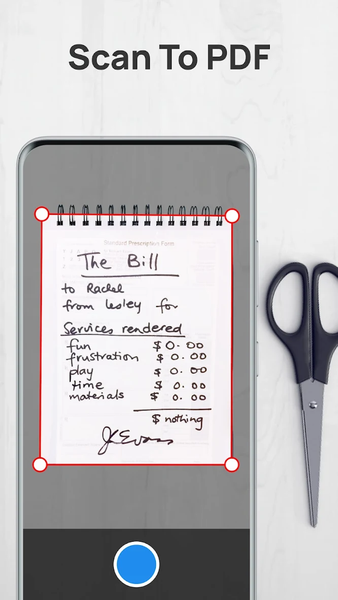 Scan To PDF
Standard Prescription Form
The Bill
to Rachel
from Lesley for
Services rendered
fun $0.00
frustration $0.00
play $0.00
time $0.00
materials $0.00
$ nothing
JKEvans